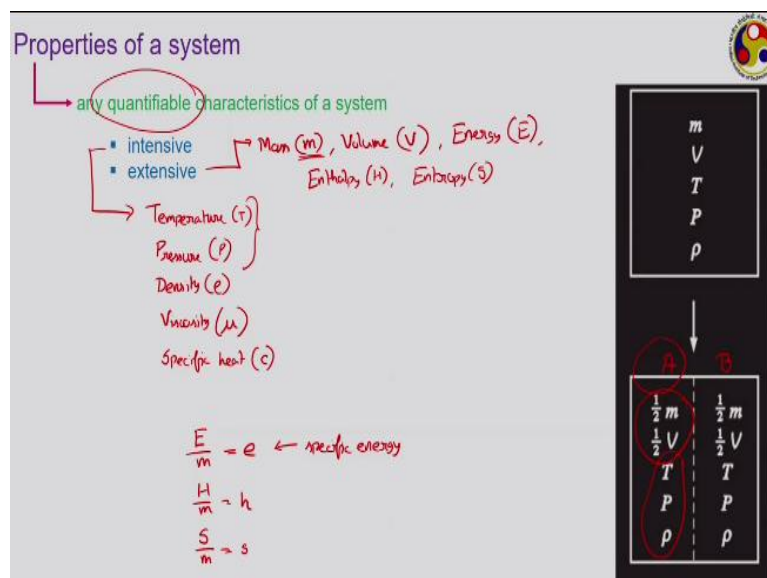 Properties of a system
any quantifiable characteristics of a system
▪ intensive
▪ extensive
Mass (m), Volume (V), Energy (E),
Enthalpy (H), Entropy (S)
Temperature (T)
Pressure (P)
Density (ρ)
Viscosity (μ)
Specific heat (c)
E/m = e ← specific energy
H/m = h
S/m = s
m
V
T
P
ρ
A B
1/2 m 1/2 m
1/2 V 1/2 V
T T
P P
ρ ρ